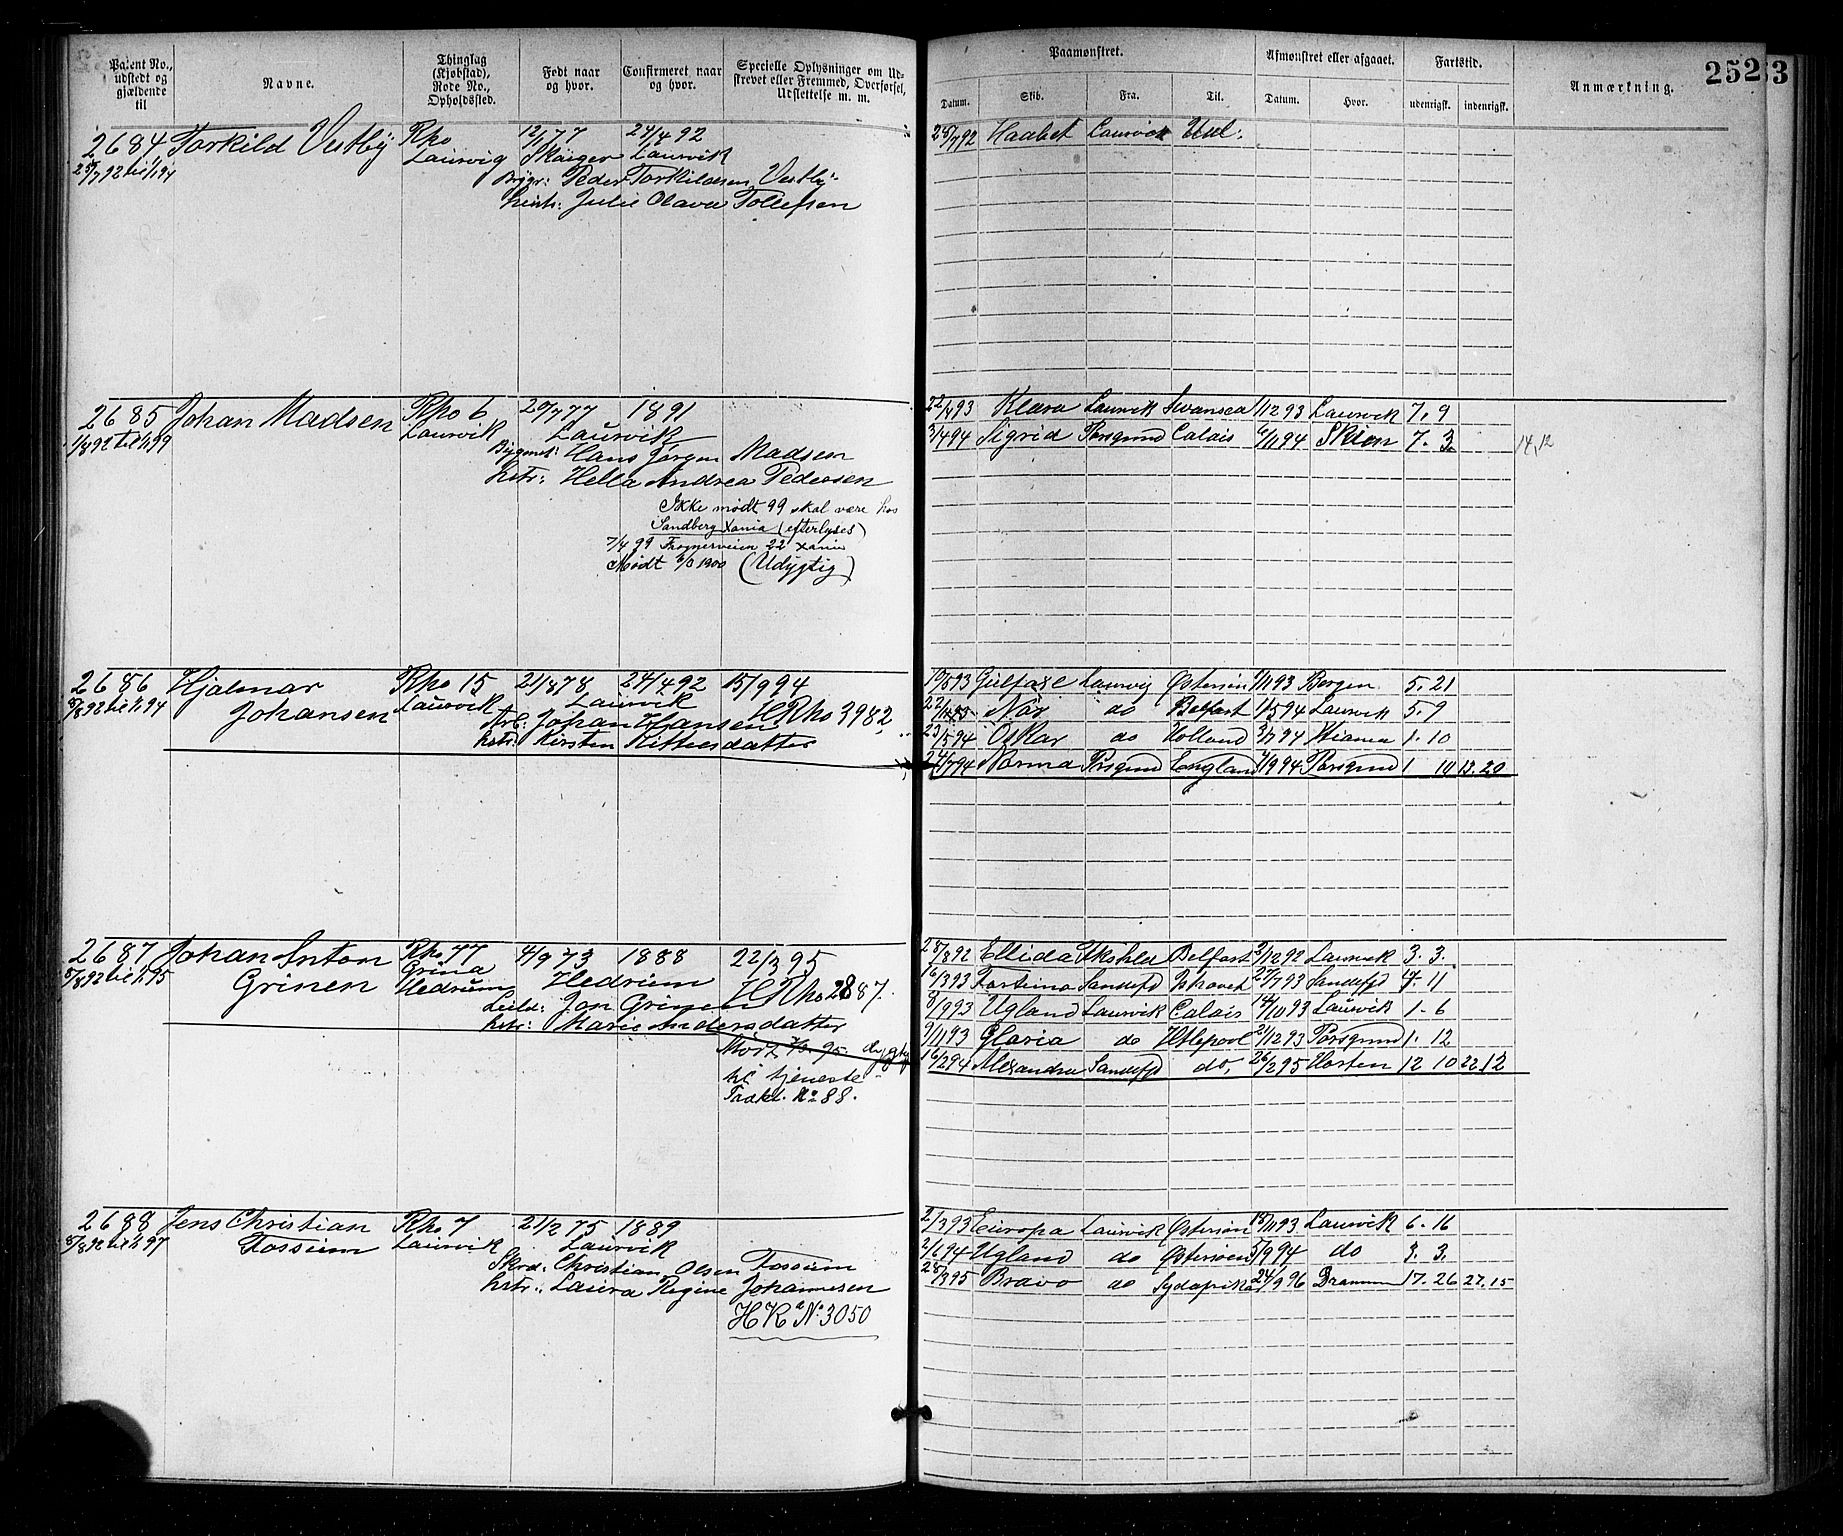 Patent No., udstedt og gjældende til
Navne.
Thinglag (Kjøbstad), Rode No., Opholdssted.
Født naar og hvor.
Confirmeret naar og hvor.
Specielle Oplysninger om Udskrevet eller Fremmed, Overførsel, Udslettelse m. m.
Paamønstret.
Datum.
Skib.
Fra.
Til.
Afmønstret eller afgaaet.
Datum.
Hvor.
Fartstid.
udenrigsk.
indenrigsk.
Anmærkning.
252
3
2684 Torkild Vestby Rko 12/1 77 24/4 92
25/7 92 til 1/1 94 Laurvig Laurvik
Peder Torkildsen Vestby
Julie Olava Tollefsen
25/7 92 Haabet Laurvik
2685 Johan Madsen Rko 6 20/7 77 1891
1/8 92 til 1/1 99 Laurvik Laurvik
Hans Jørgen Madsen
Hella Andrea Pedersen
Ikke mødt 99 skal være hos
Sandberg Xania (efterlyses)
7/4 99 Frognerveien 22 Xania
Mødt 1900 (Udygtig)
22/4 93 Klara Laurvik Swansea 1/12 93 Laurvik 7. 9
3/4 94 Sigrid Porsgrund Calais 6/11 94 Skien 7. 3
14,12
2686 Hjalmar Rko 15 21/8 78 24/4 92 15/9 94
5/8 92 til 1/1 94 Johansen Laurvik Laurvik HRko 3982
Arb: Johan Hansen
Kirsten Kittilsdatter
10/5 93 Gulfaxe Laurvig Østersøen 1/11 93 Bergen 5. 21
Når do Belfast 1/5 94 Laurvik 5. 9
23/5 94 Oskar do Holland 3/7 94 1. 10
24/7 94 Norma Porsgrund England 1/9 94 Porsgrund 1 10 13. 20
2687 Johan Anton Rko 47 4/9 73 1888 22/3 95
5/8 92 til 1/1 95 Grinen Grina Hedrum Hedrum HRko 2887.
Jon Grinen
Marie Andersdatter
Mødt 95 dygtig
til tjeneste
Prakt. No 88.
28/8 92 Ellida Belfast 2/12 92 Laurvik 3. 3.
16/3 93 Fortuna Sandefd Ishavet 27/7 93 Sandefd 4. 11
8/9 93 Ugland Laurvik Calais 14/10 93 Laurvik 1. 6
9/11 93 Gloria do Htlepool 21/12 93 Porsgrund 1. 12
16/2 94 Alexandra Sandefd do, 26/2 95 Horten 12 10 22.12
2688 Jens Christian Rko 7 21/2 75 1889
5/8 92 til 1/1 97 Fosseum Laurvik Laurvik
Christian Olsen Fosseum
Laura Regine Johannesen
HR No. 3050
2/3 93 Europa Laurvik Østersøen 18/11 93 Laurvik 6. 16
2/6 94 Ugland do Østersøen 5/9 94 do 3. 3.
28/3 95 Bravo do Sydafrika 24/9 96 Drammen 17. 26 27. 15